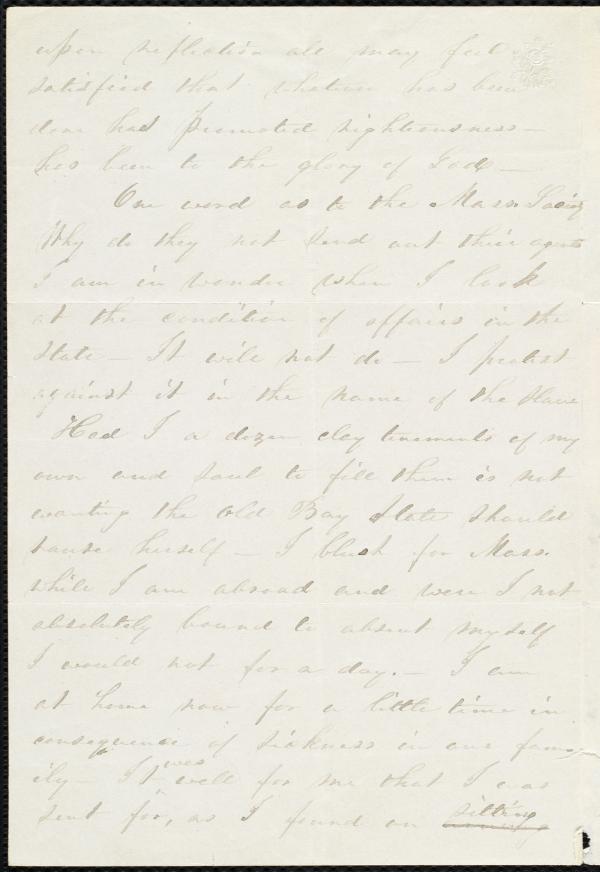 upon reflection all may feel
satisfied that whatever has been
done has promoted righteousness —
has been to the glory of God —
One word as to the Mass. Society
Why do they not send out their agents
I am in wonder when I look
at the condition of affairs in the
State — It will not do — I protest
against it in the name of the Slave
Had I a dozen clay tenements of my
own and soul to fill them is not
wanting the old Bay State should
rouse herself — I blush for Mass.
while I am abroad and were I not
absolutely bound to absent myself
I would not for a day. — I am
at home now for a little time in
consequence of sickness in our fam-
ily — It was well for me that I was
sent for, as I found on sitting